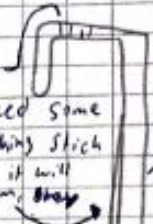 ed some
hing stick
it will